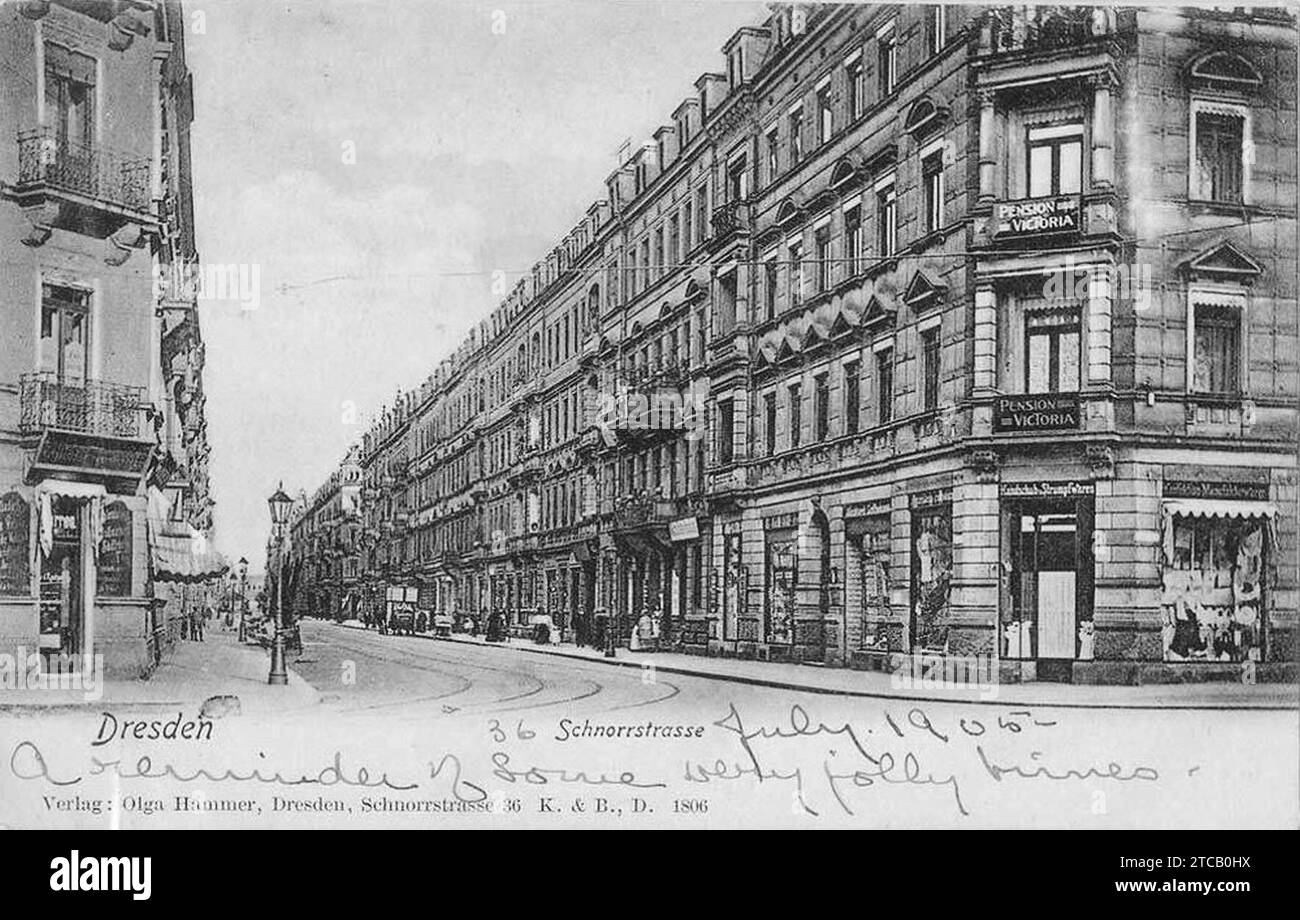 PENSION
VICTORIA
PENSION
VICTORIA
Handschuh u. Strumpfwaren
Dresden
36 Schnorrstrasse July. 1905-
A reminder of some very jolly times -
Verlag: Olga Hammer, Dresden, Schnorrstrasse 36 K. & B., D. 1806
alamy
Image ID: 2TCB0HX
www.alamy.com